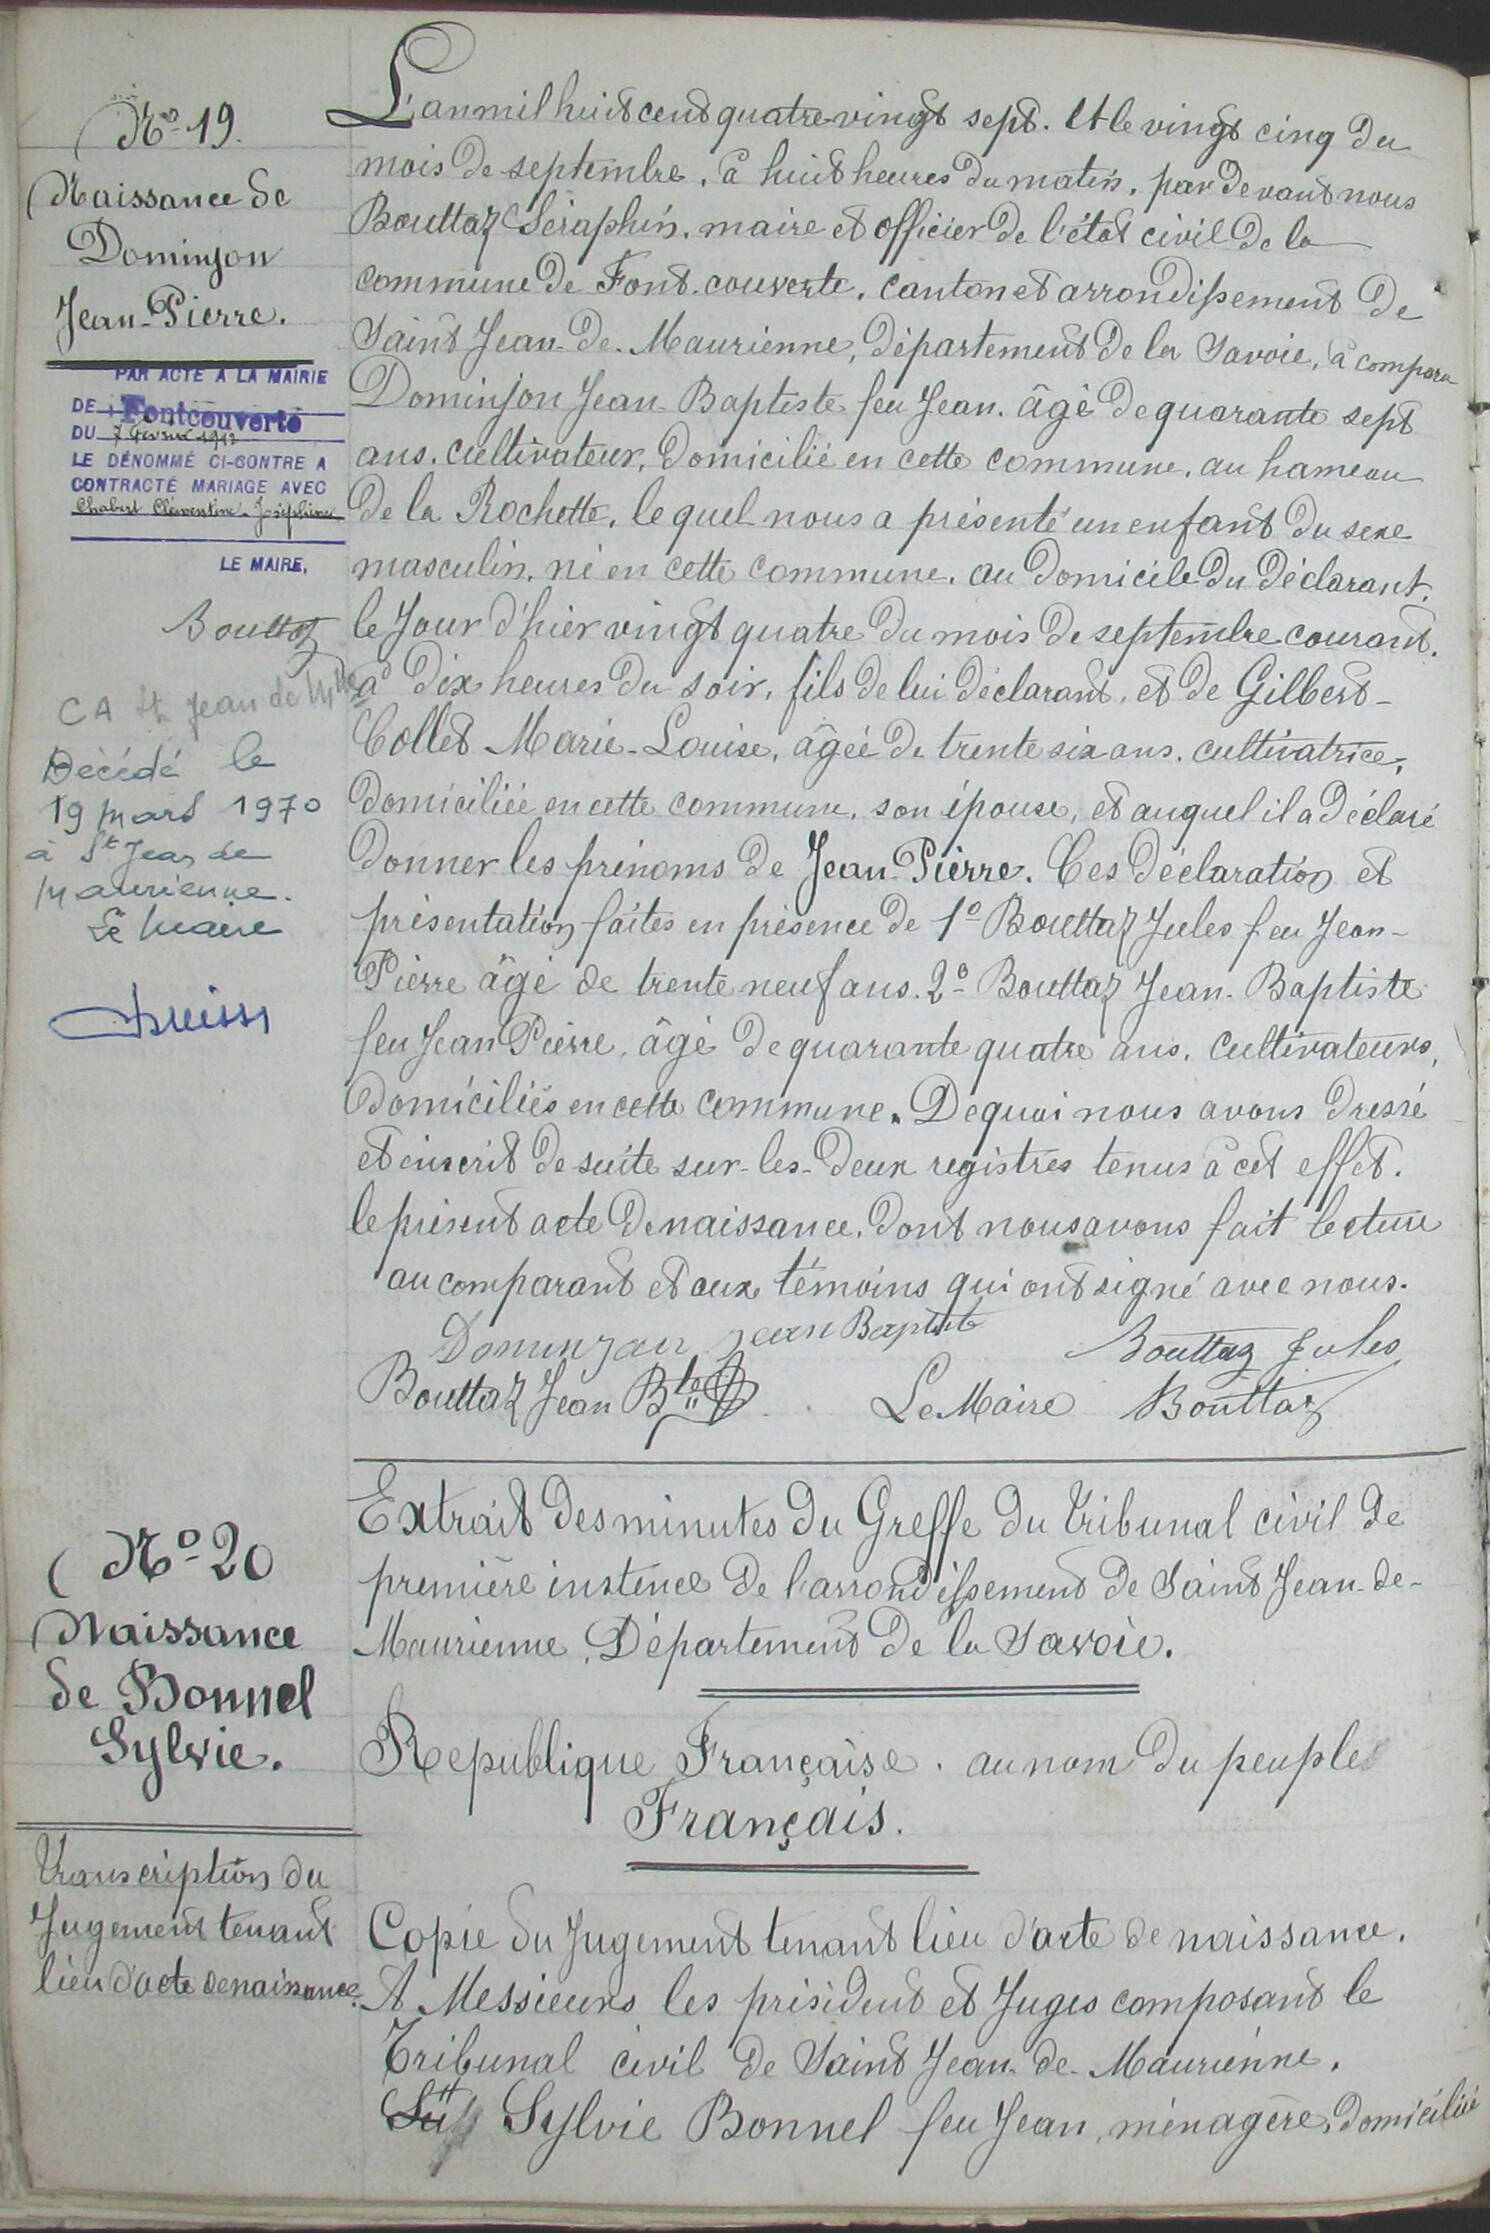 Nº 19.
Naissance de
Dominjon
Jean-Pierre.
PAR ACTE A LA MAIRIE
DE Fontcouverte
DU 7 février 1912
LE DÉNOMMÉ CI-CONTRE A
CONTRACTÉ MARIAGE AVEC
Chabert Clémentine-Joséphine
LE MAIRE,
Bouttaz
CA St Jean de Mne
Décédé le
19 mars 1970
à St Jean de
Maurienne.
Le Maire
L'an mil huit cent quatre-vingt sept. Et le vingt cinq du
mois de septembre, à huit heures du matin, par devant nous
Bouttaz Séraphin, maire et officier de l'état civil de la
commune de Font-couverte, canton et arrondissement de
Saint Jean-de-Maurienne, département de la Savoie, a comparu
Dominjon Jean-Baptiste feu Jean, âgé de quarante sept
ans, cultivateur, domicilié en cette commune, au hameau
de la Rochette, lequel nous a présenté un enfant du sexe
masculin, né en cette commune, au domicile du déclarant,
le jour d'hier vingt quatre du mois de septembre courant,
à dix heures du soir, fils de lui déclarant, et de Gilbert-
Collet Marie-Louise, âgée de trente six ans, cultivatrice,
domiciliée en cette commune, son épouse, et auquel il a déclaré
donner les prénoms de Jean-Pierre. Ces déclaration et
présentation faites en présence de 1º Bouttaz Jules feu Jean-
Pierre âgé de trente neuf ans. 2º Bouttaz Jean-Baptiste
feu Jean Pierre, âgé de quarante quatre ans, cultivateurs,
domiciliés en cette commune. De quoi nous avons dressé
et inscrit de suite sur-les-deux registres tenus à cet effet.
le présent acte de naissance, dont nous avons fait lecture
au comparant et aux témoins qui ont signé avec nous.
Dominjon Jean Baptiste Bouttaz Jules
Bouttaz Jean Bte Le Maire Bouttaz
Nº 20
Naissance
de Bonnel
Sylvie.
Transcription du
Jugement tenant
lieu d'acte de naissance.
Extrait des minutes du Greffe du Tribunal civil de
première instence de l'arrondissement de Saint Jean-de-
Maurienne, Département de la Savoie.
Republique Française. au nom du peuple
Français.
Copie du Jugement tenant lieu d'acte de naissance.
A Messieurs les président et Juges composant le
Tribunal civil de Saint Jean-de-Maurienne.
Sylvie Bonnel feu Jean, ménagère, domiciliée